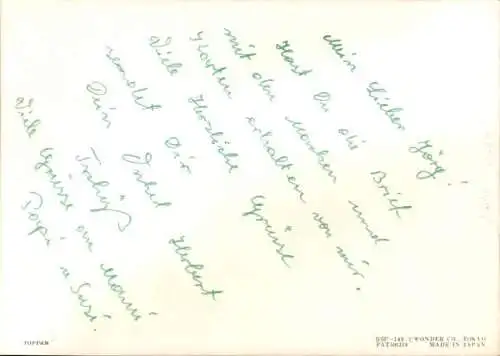 Mein Lieber Jörg!
Hast Du die Brief
mit den Marken und
Karten erhalten von mir.
Viele Herzliche Grüsse
sendet Dir
Dein Onkel Herbert
Viele Grüsse an Mami
Papi u Susi.
TOPPAN
WONDER CO., TOKYO
MADE IN JAPAN